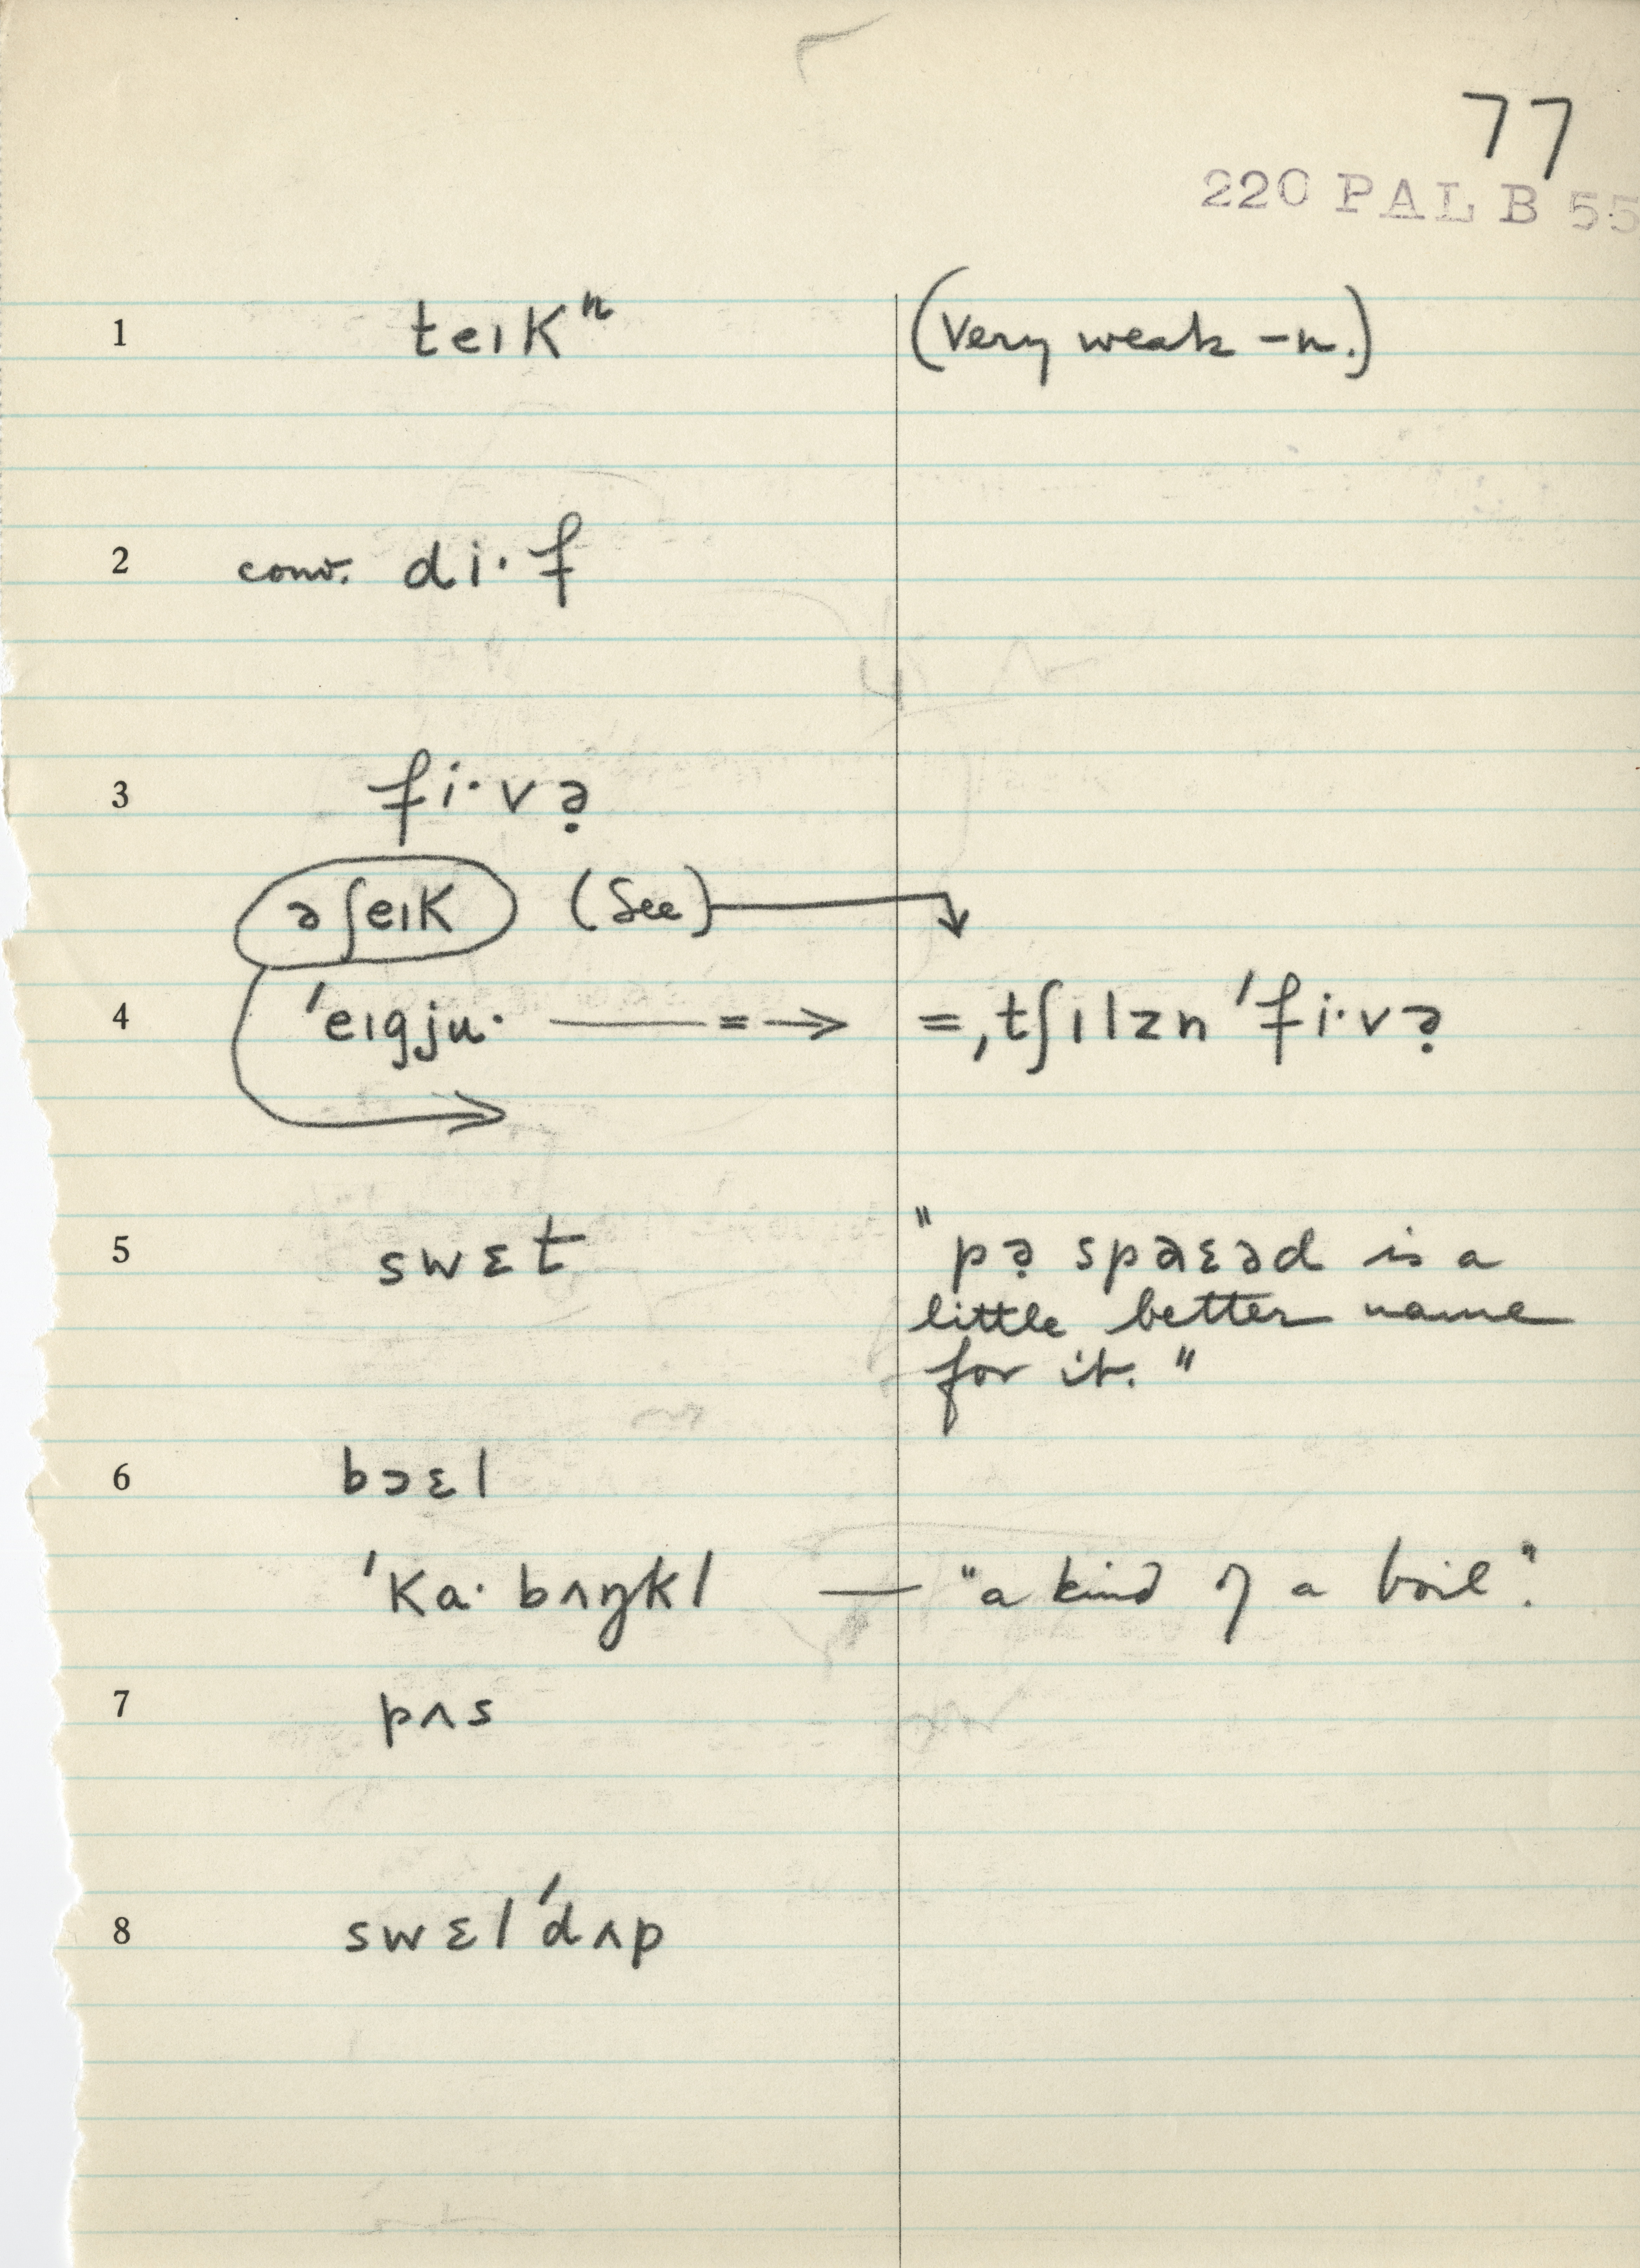 77
220 PAL B 55
1 teɪKⁿ (Very weak -n.)
2 conv. di·f
3 fi·və̣
əʃeɪK (See)
4 ˈeɪgju· ——=→ =ˌtʃɪlzn ˈfi·və̣
5 swɛt "pə̣ spaɛəd is a
little better name
for it."
6 bɔɛl
ˈKa·bʌŋkl — "a kind of a boil".
7 pʌs
8 swɛlˈdʌp